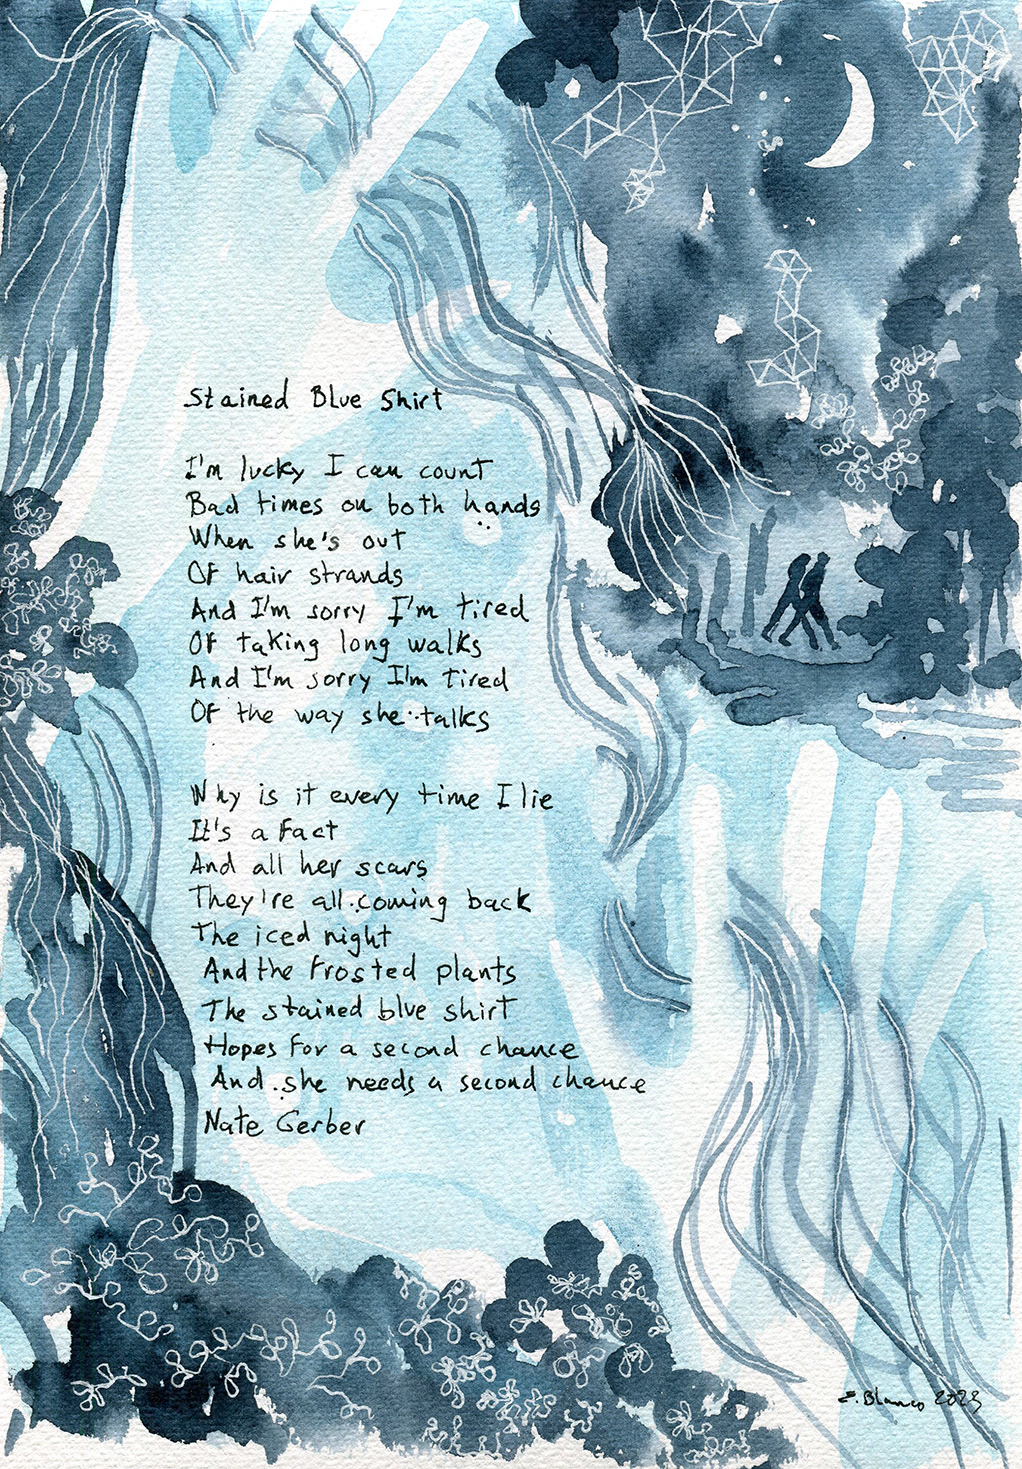 Stained Blue Shirt
I'm lucky I can count
Bad times on both hands
When she's out
Of hair strands
And I'm sorry I'm tired
Of taking long walks
And I'm sorry I'm tired
Of the way she talks
Why is it every time I lie
It's a fact
And all her scars
They're all coming back
The iced night
And the frosted plants
The stained blue shirt
Hopes for a second chance
And she needs a second chance
Nate Gerber
E. Blanco 2023